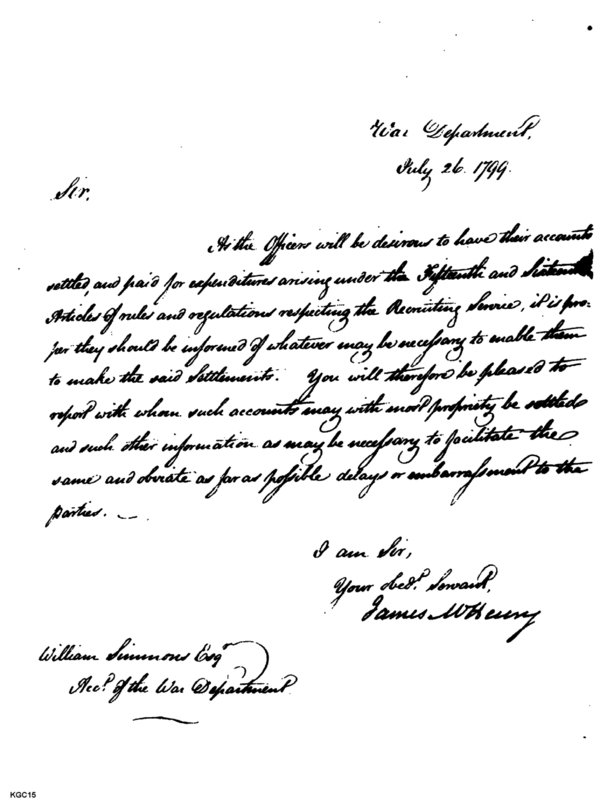 War Department,
July 26. 1799.
Sir,
As the Officers will be desirous to have their accounts
settled, and paid for expenditures arising under the Fifteenth and Sixteenth
Articles of rules and regulations respecting the Recruiting Service, it is pro-
per they should be informed of whatever may be necessary to enable them
to make the said Settlements. You will therefore be pleased to
report with whom such accounts may with most propriety be settled
and such other information as may be necessary to facilitate the
same and obviate as far as possible delays or embarrassment to the
parties. —
I am Sir,
Your obedt. Servant,
James McHenry
William Simmons Esqr
Acct. of the War Department
KGC15